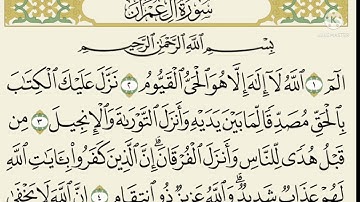 سُورَةُ آلِ عِمْرَانَ
بِسْمِ ٱللَّهِ ٱلرَّحْمَٰنِ ٱلرَّحِيمِ
الٓمٓ ١ ٱللَّهُ لَآ إِلَٰهَ إِلَّا هُوَ ٱلْحَىُّ ٱلْقَيُّومُ ٢ نَزَّلَ عَلَيْكَ ٱلْكِتَٰبَ
بِٱلْحَقِّ مُصَدِّقًا لِّمَا بَيْنَ يَدَيْهِ وَأَنزَلَ ٱلتَّوْرَىٰةَ وَٱلْإِنجِيلَ ٣ مِن
قَبْلُ هُدًى لِّلنَّاسِ وَأَنزَلَ ٱلْفُرْقَانَ ۗ إِنَّ ٱلَّذِينَ كَفَرُوا۟ بِـَٔايَٰتِ ٱللَّهِ
لَهُمْ عَذَابٌ شَدِيدٌ ۗ وَٱللَّهُ عَزِيزٌ ذُو ٱنتِقَامٍ ٤ إِنَّ ٱللَّهَ لَا يَخْفَىٰ